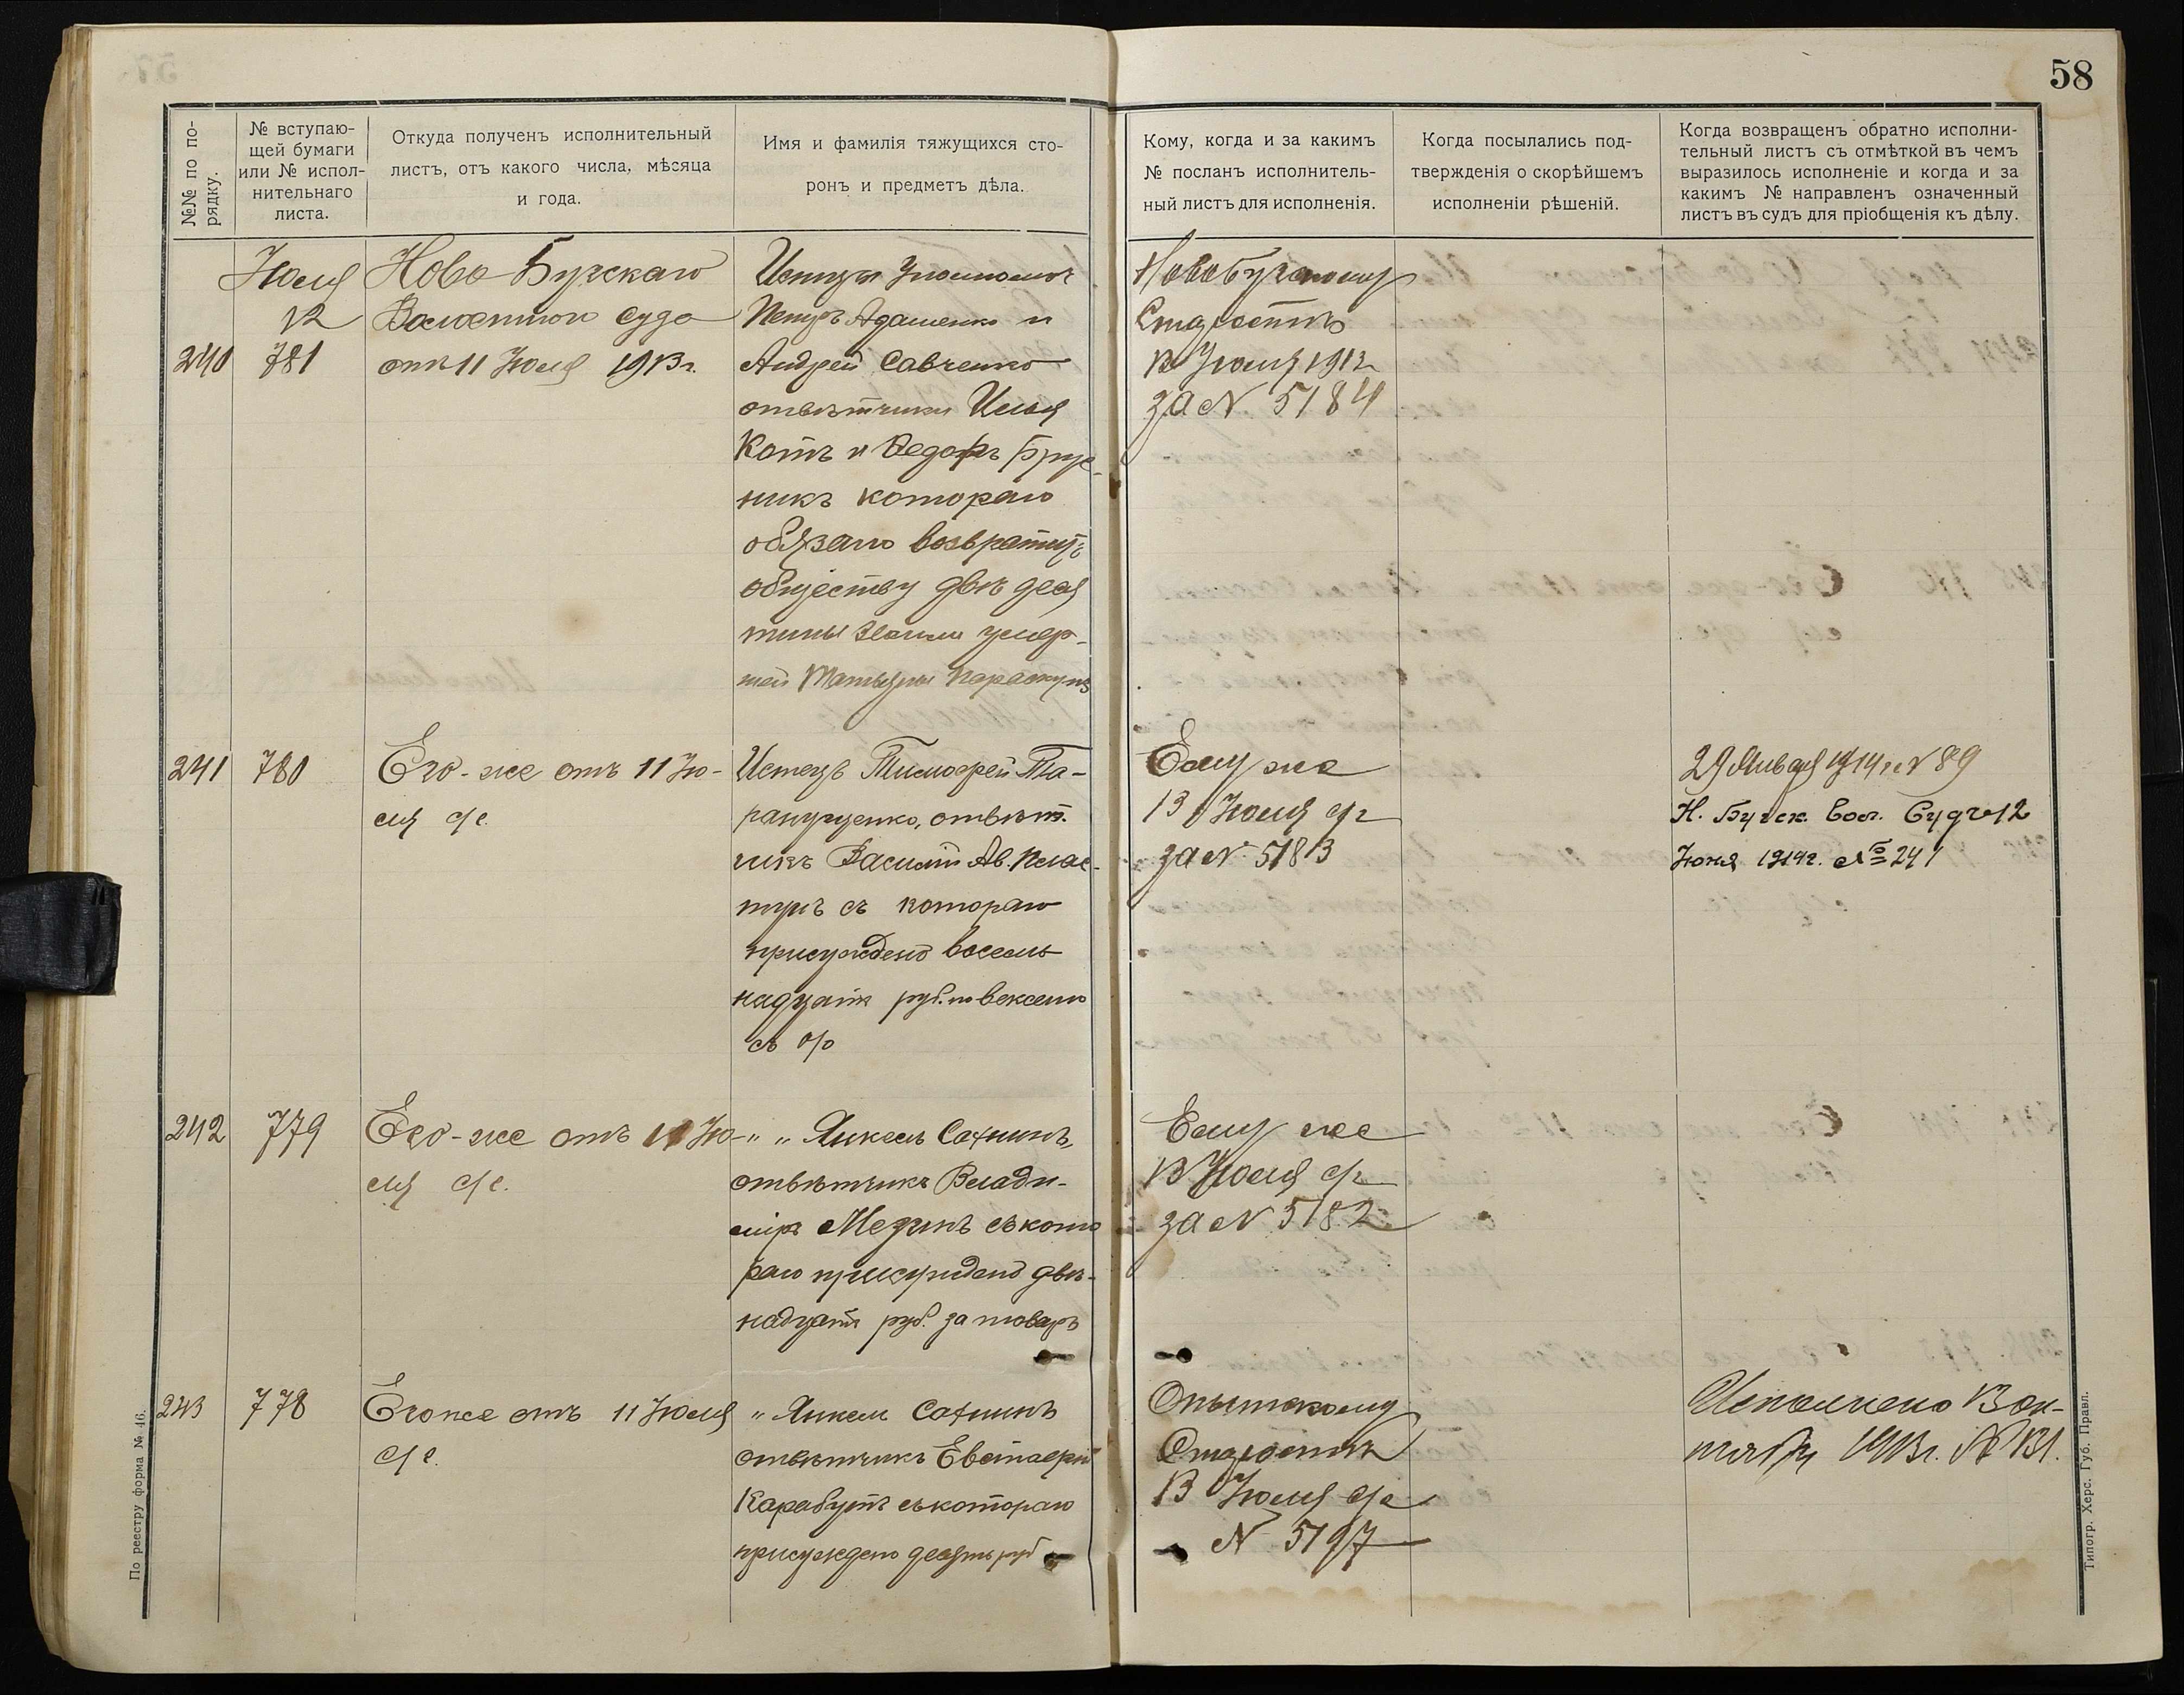 58
№№ по по-
рядку.
№ вступаю-
щей бумаги
или № испол-
нительнаго
листа.
Откуда полученъ исполнительный
листъ, отъ какого числа, мѣсяца
и года.
Имя и фамилія тяжущихся сто-
ронъ и предметъ дѣла.
Кому, когда и за какимъ
№ посланъ исполнитель-
ный листъ для исполненія.
Когда посылались под-
твержденія о скорѣйшемъ
исполненіи рѣшеній.
Когда возвращенъ обратно исполни-
тельный листъ съ отмѣткой въ чемъ
выразилось исполненіе и когда и за
какимъ № направленъ означенный
листъ въ судъ для пріобщенія къ дѣлу.
Июля
12
240 781
Ново Бугскаго
Волостного Суда
отъ 11 Июля 1913 г.
Истцы
Петръ Адаменко и
Андрей Савченко
отвѣтчики Илья
Котъ и Ѳедоръ
никъ котораго
обязано возвратить
обществу двѣ деся
тины земли умер-
шей Татьяны
Новобугскому
Старостѣ
13 Июля 1913
за № 5184
241 780
Его-же отъ 11 Ию-
ля с/г.
Истецъ Тимофей Та-
ранущенко, отвѣт.
чикъ Василій Ав. Плас-
тунъ съ котораго
присуждено восем
надцать руб. по векселю
съ %
Ему же
13 Июля с/г
за № 5183
29 Января 1914 г. № 89
Н. Бугск. Вол. Суд 12
Июня 1914 г. № 241
242 779
Его-же отъ 11 Ию-
ля с/г.
" " Янкель Сахнинъ,
отвѣтчикъ Влади-
міръ Мезинъ съ кото
раго присуждено двѣ-
надцать руб. за товаръ
Ему же
13 Июля с/г
за № 5182
243 778
Его же отъ 11 Июля
с/г.
" Янкель Сахнинъ
отвѣтчикъ Евстафій
Карабутъ съ котораго
присуждено десять руб
Старостѣ
13 Июля с/г
№ 5197
Исполнено 13 ок-
тября 1913 г. № 131.
По реестру форма № 46.
Типогр. Херс. Губ. Правл.